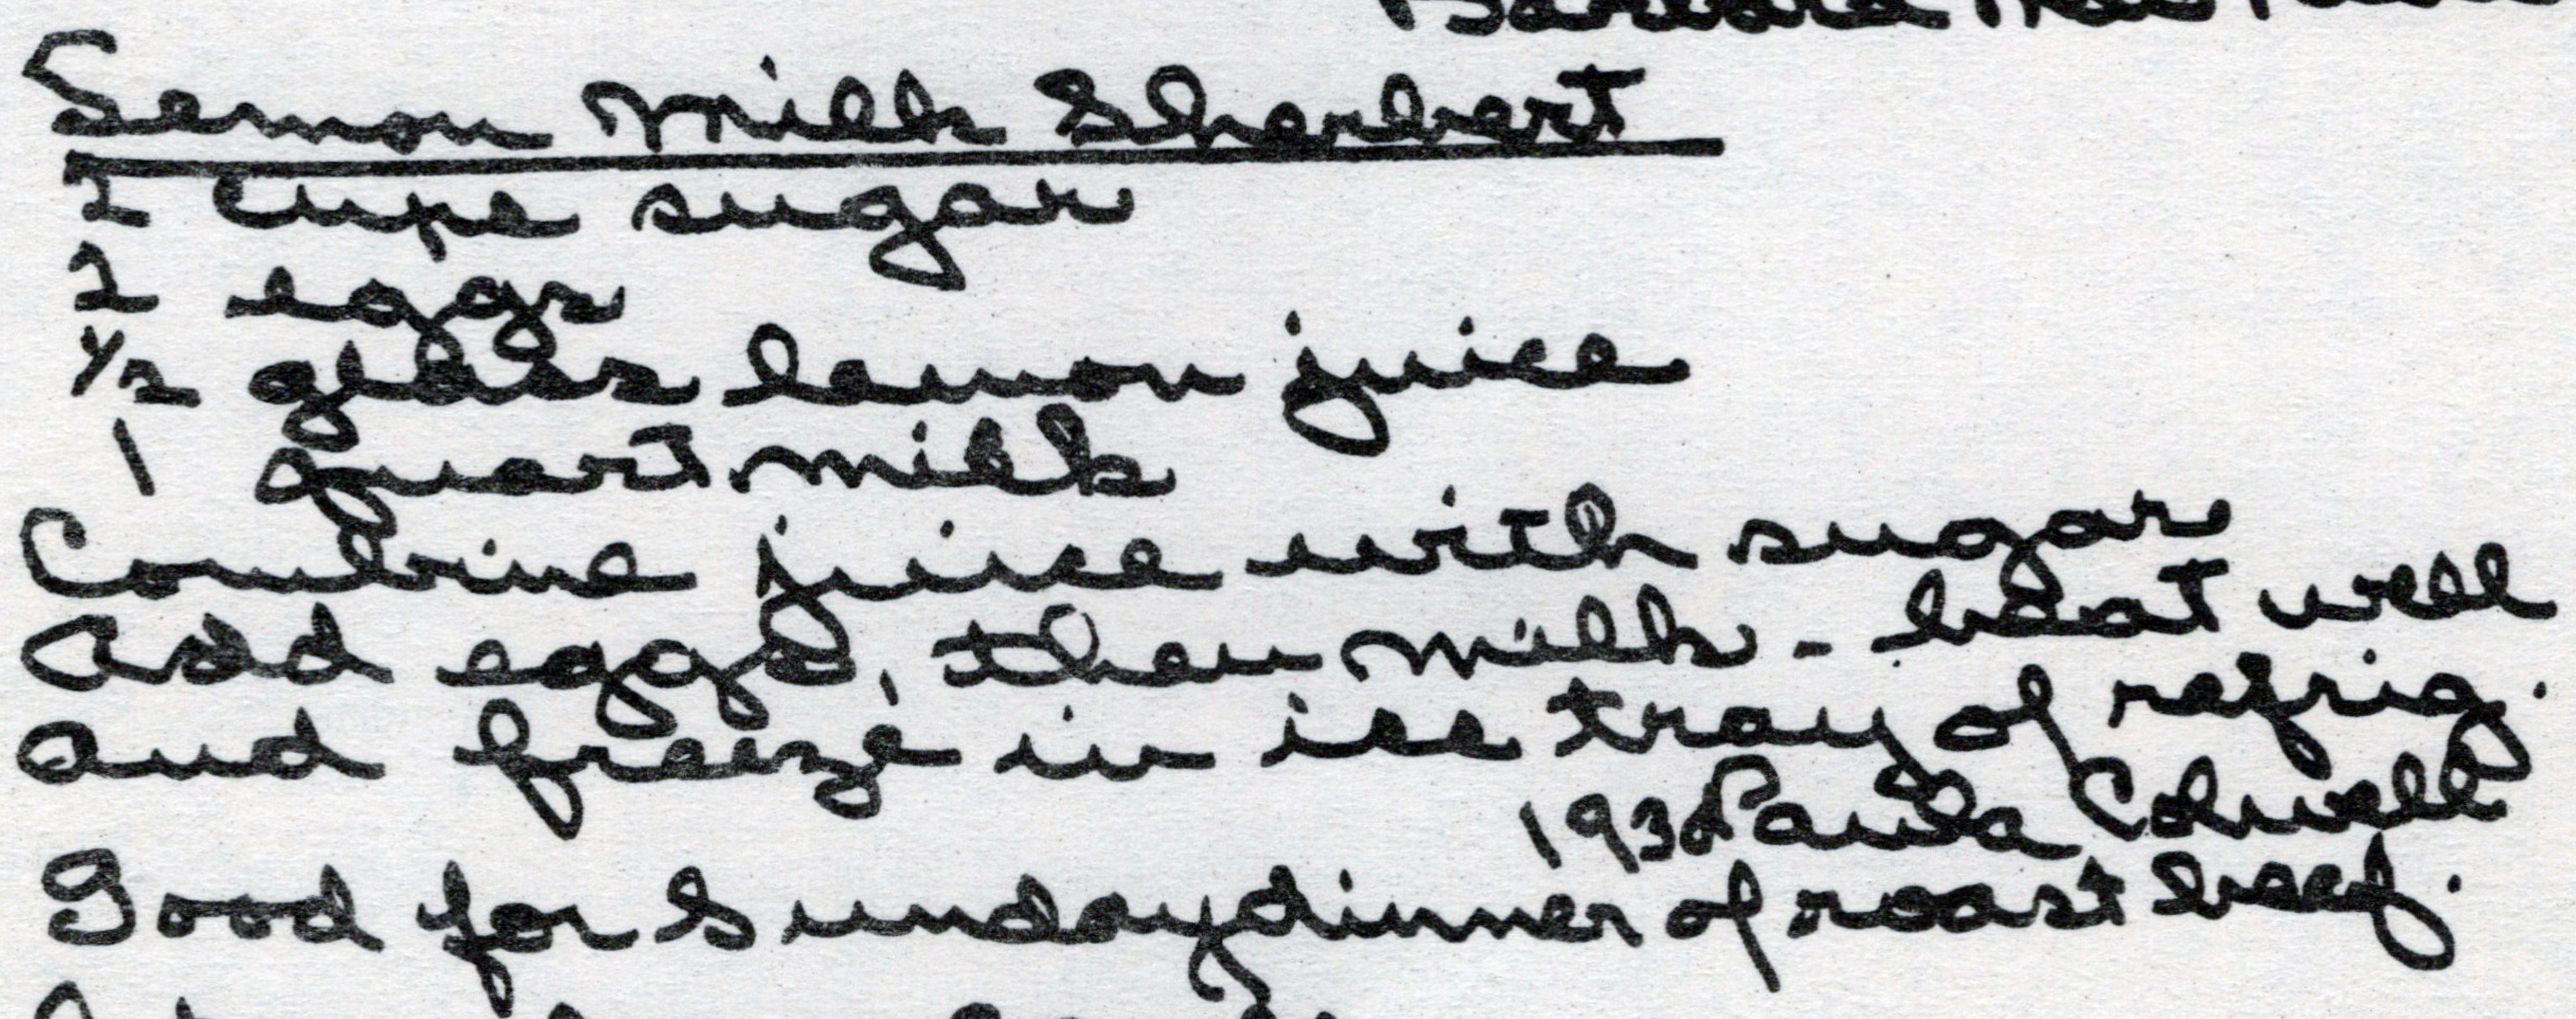 Lemon Milk Sherbert
2 cups sugar
2 eggs
1/2 glass lemon juice
1 quart milk
Combine juice with sugar
Add eggs, then milk - beat well
and freeze in ice tray of refrig.
Paula Colwell
Good for Sunday dinner of roast beef.